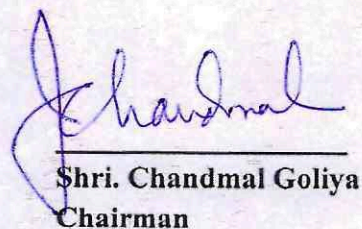 Chandmal
Shri. Chandmal Goliya
Chairman